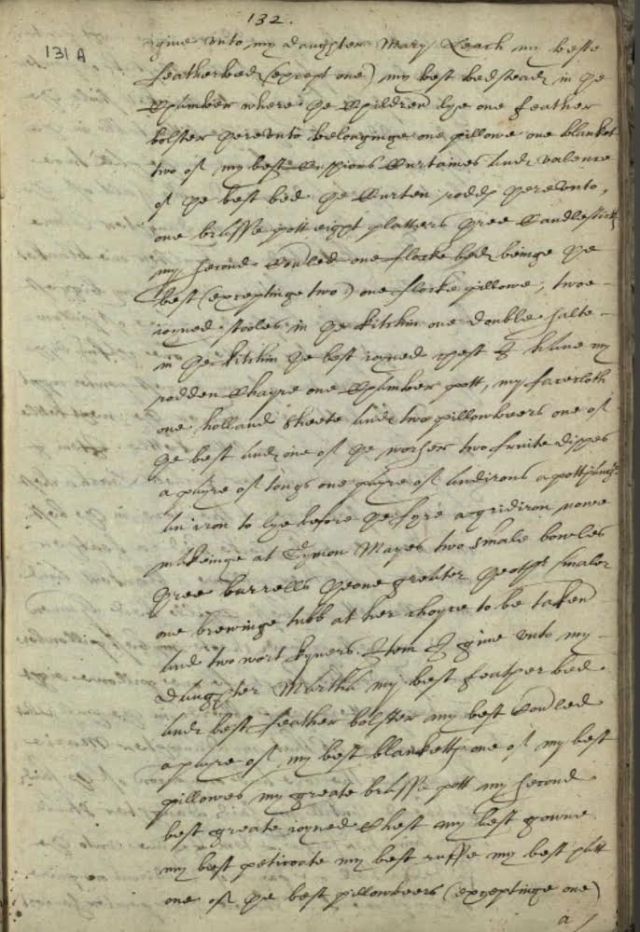 132.
131 A
give vnto my daughter Mary Leach my beste
featherbed (except one) my best bedstead in ye
Chamber where ye Children lye one feather
bolster herevnto belonginge one pillowe one blanket
two of my best Cussions Curtaines and valence
of ye best bed ye Curten rodds herevnto,
one brasse pott eight platters three Candlesticks
my second Couled one flocke bed beinge ye
best (exceptinge two) one flocke pillowe, twoe
ioyned stooles in ye kitchin one double salte
in ye kitchin ye best ioyned chest I have my
rodden Chayre one Chamber pott, my facecloth
one holland sheete and two pillowbeers one of
ye best and one of ye worser two fruite dishes
a payre of tongs one payre of andirons a
an iron to lye before ye fyre a gridiron nowe
makeinge at Symon Mayes two smale boweles
three barrells theone greater theother smaler
one brewinge tubb at her choyce to be taken
and two wort kyners. Item I give vnto my
daughter Martha my best feather bed
and best feather bolster my best Couled
a payre of my best blanketts one of my best
pillowes my greate brasse pott my second
best greate ioyned Chest my best gowne
my best peticoate my best ruffe my best
one of ye best pillowbeers (exceptinge one)
a